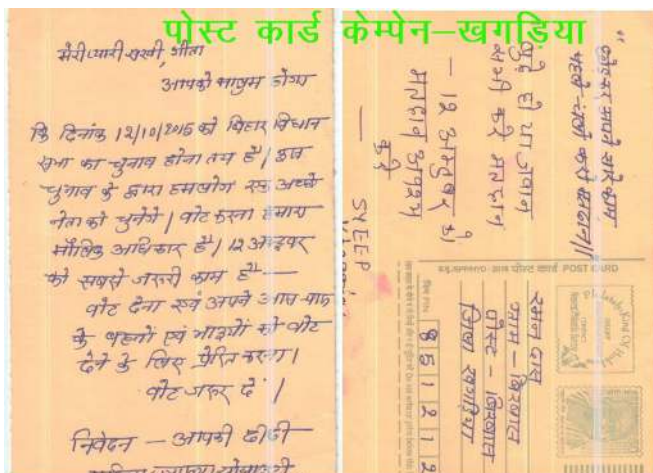 पोस्ट कार्ड केम्पेन–खगड़िया
मेरी प्यारी सखी, गीता
आपको मालूम होगा
कि दिनांक 12/10/2015 को बिहार विधान
सभा का चुनाव होना तय है। इस
चुनाव के द्वारा हमलोग एक अच्छे
नेता को चुनेंगे। वोट करना हमारा
मौलिक अधिकार है। 12 अक्टूबर
को सबसे जरूरी काम है —
वोट देना एवं अपने आस पास
के बहनों एवं भाइयों को वोट
देने के लिए प्रेरित करना।
वोट जरूर दें।
निवेदन — आपकी दीदी
"छोड़कर अपने सारे काम
पहले चलो करें मतदान॥"
बुढ़े हो या जवान
सभी करे मतदान
– 12 अक्तुबर को
मतदान अवश्य
करें
— SVEEP
पोस्ट कार्ड POST CARD
ग्राम –
पोस्ट –
जिला खगड़िया
पिन PIN
8 5 1 2 1 2